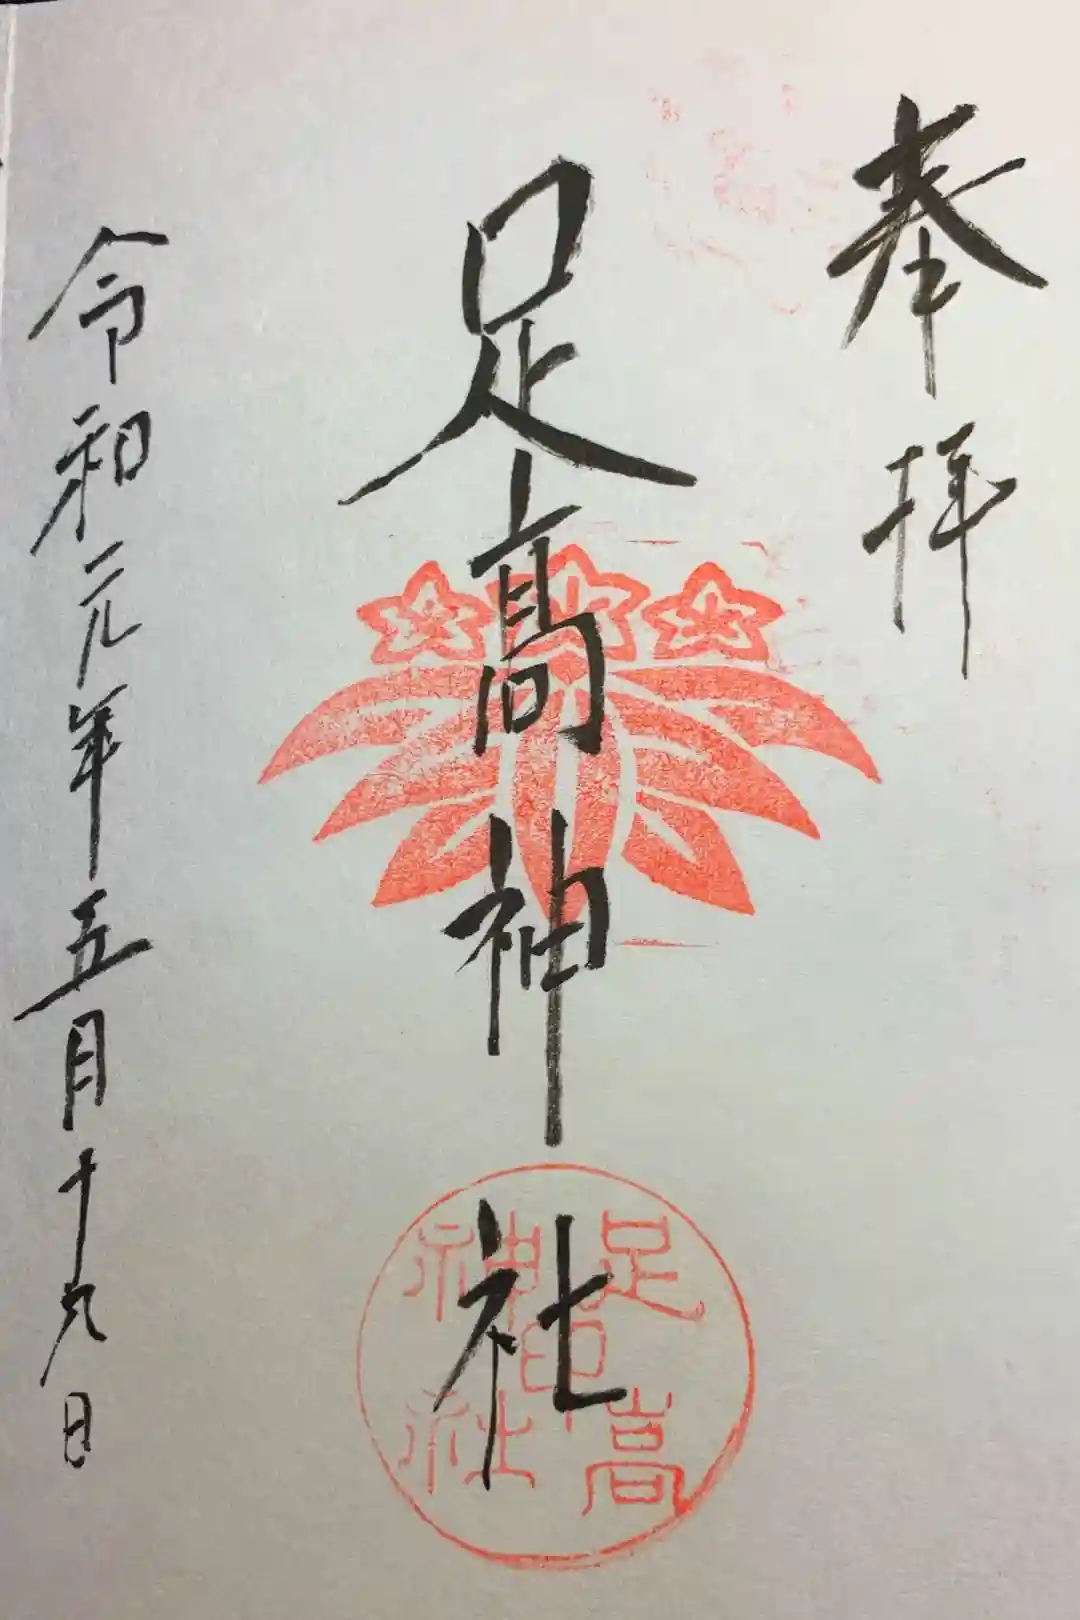 奉拝
足高神社
令和元年五月十九日
足高
神社
印